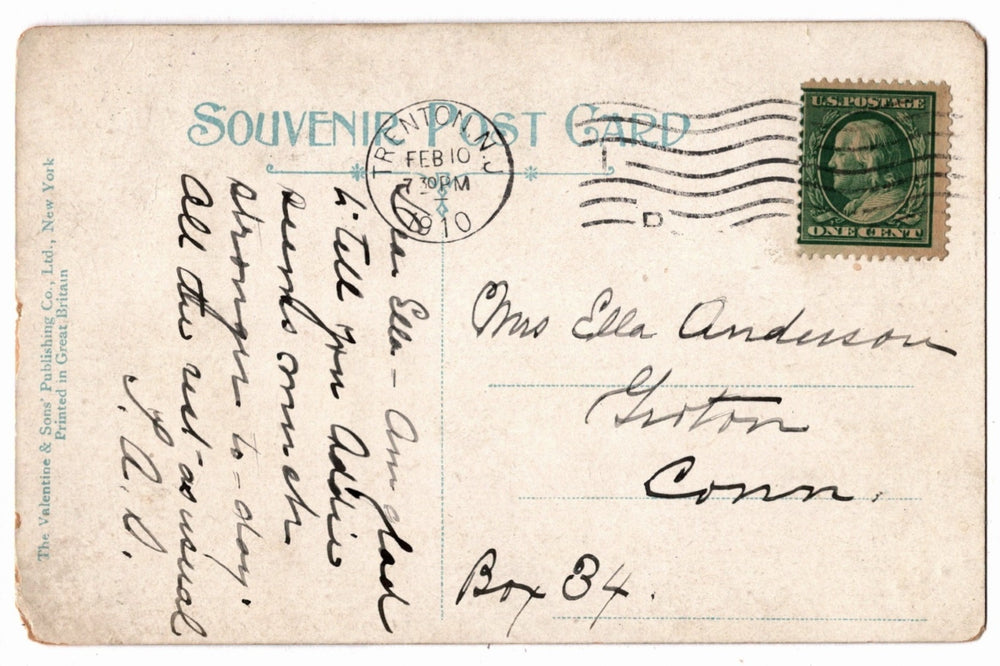 SOUVENIR POST CARD
TRENTON, N.J.
FEB 10
7 30 PM
1910
D
U.S. POSTAGE
ONE CENT
Dear Ella – Am glad
to tell you Addie
seems much
stronger to-day.
All the rest as usual
A. D.
Mrs Ella Anderson
Groton
Conn.
Box 34.
The Valentine & Sons' Publishing Co., Ltd., New York
Printed in Great Britain